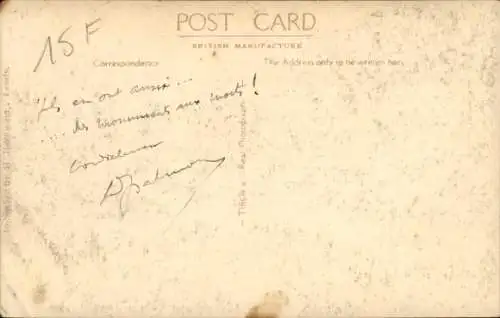 15F
POST CARD
BRITISH MANUFACTURE
Correspondence
The Address only to be written here
Ils en ont aussi...
... des monuments aux morts !
Cordialement
This is a Real Photograph